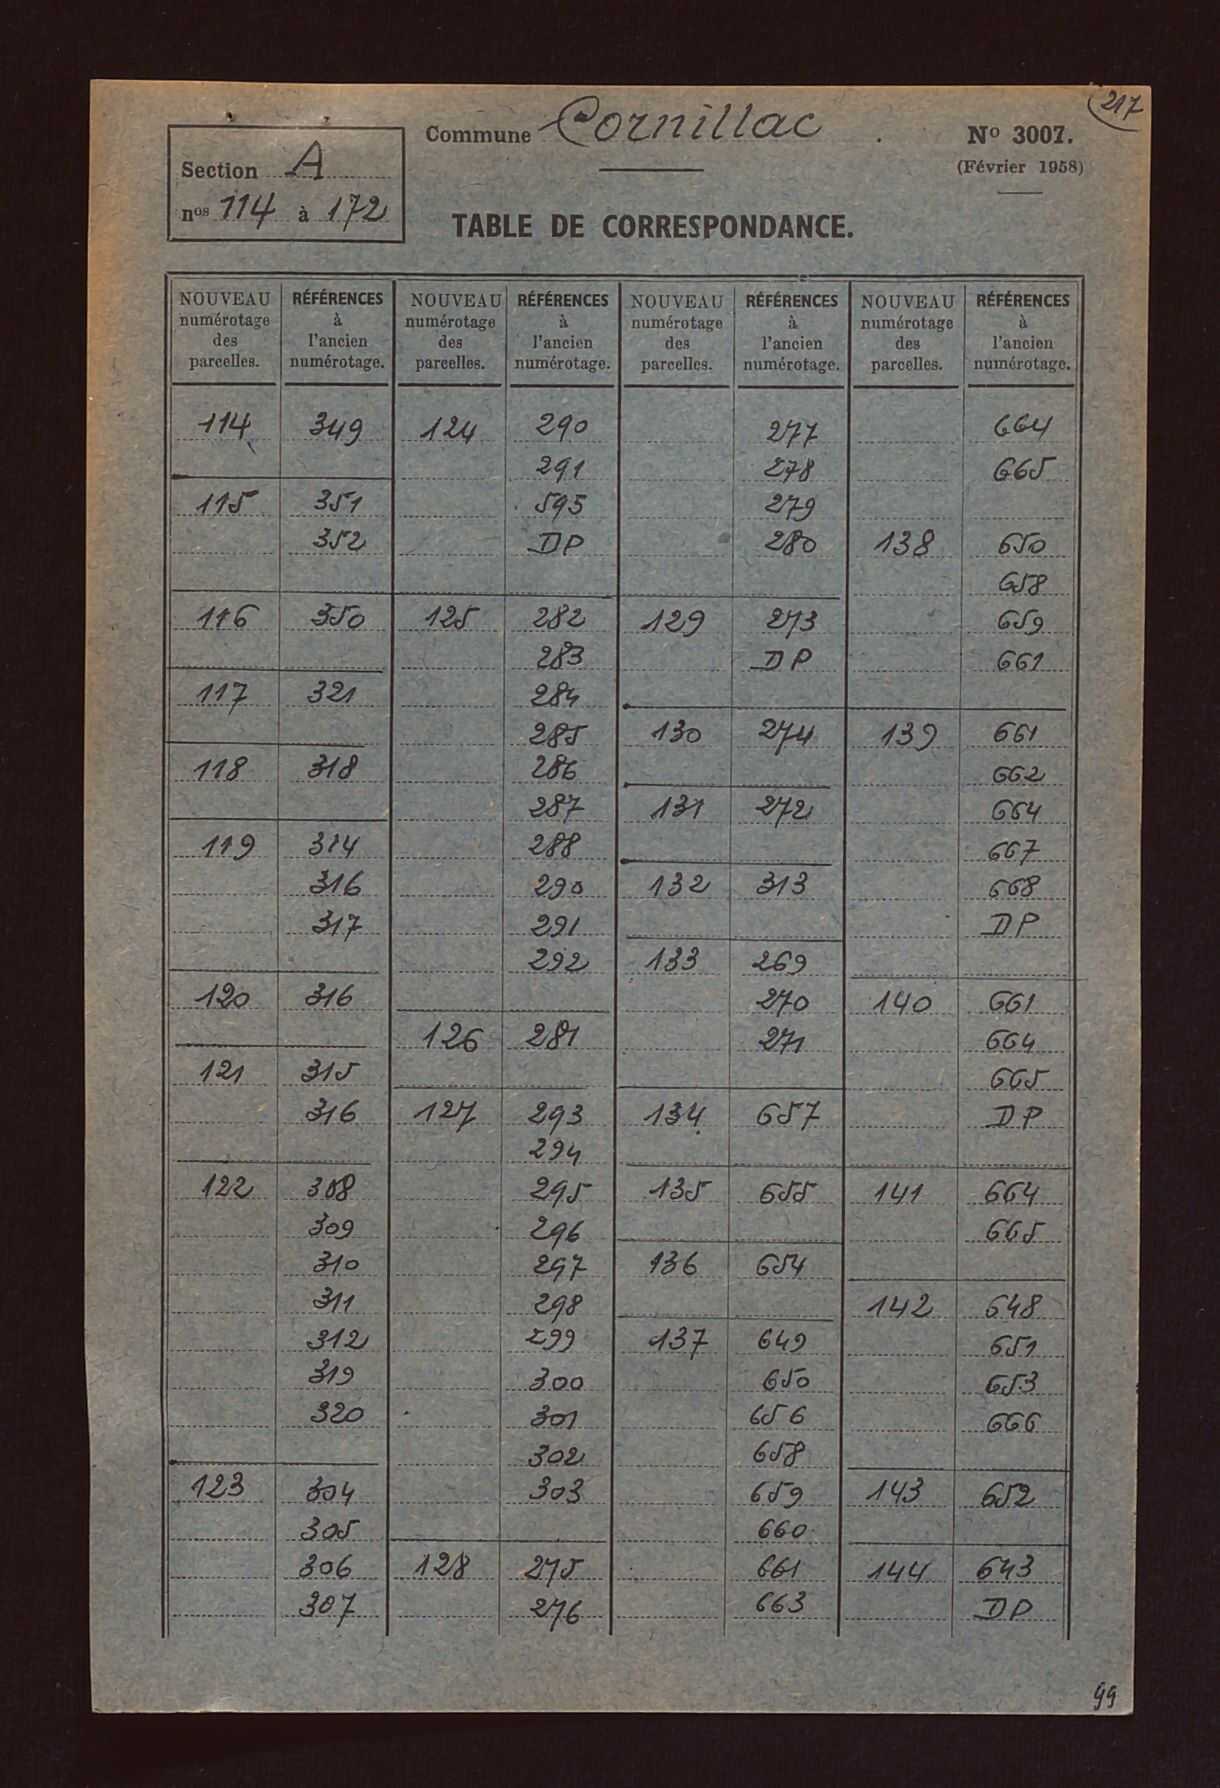 217
Commune Cornillac
N° 3007.
(Février 1958)
Section A
nos 114 à 172
TABLE DE CORRESPONDANCE.
NOUVEAU numérotage des parcelles. RÉFÉRENCES à l'ancien numérotage. NOUVEAU numérotage des parcelles. RÉFÉRENCES à l'ancien numérotage. NOUVEAU numérotage des parcelles. RÉFÉRENCES à l'ancien numérotage. NOUVEAU numérotage des parcelles. RÉFÉRENCES à l'ancien numérotage.
114 349
115 351
352
116 350
117 321
118 318
119 314
316
317
120 316
121 315
316
122 308
309
310
311
312
319
320
123 304
305
306
307
124 290
291
595
DP
125 282
283
284
285
286
287
288
290
291
292
126 281
127 293
294
295
296
297
298
299
300
301
302
303
128 275
276
277
278
279
280
129 273
DP
130 274
131 272
132 313
133 269
270
271
134 657
135 655
136 654
137 649
650
656
658
659
660
661
663
664
665
138 650
658
659
661
139 661
662
664
667
668
DP
140 661
664
665
DP
141 664
665
142 648
651
653
666
143 652
144 643
DP
99